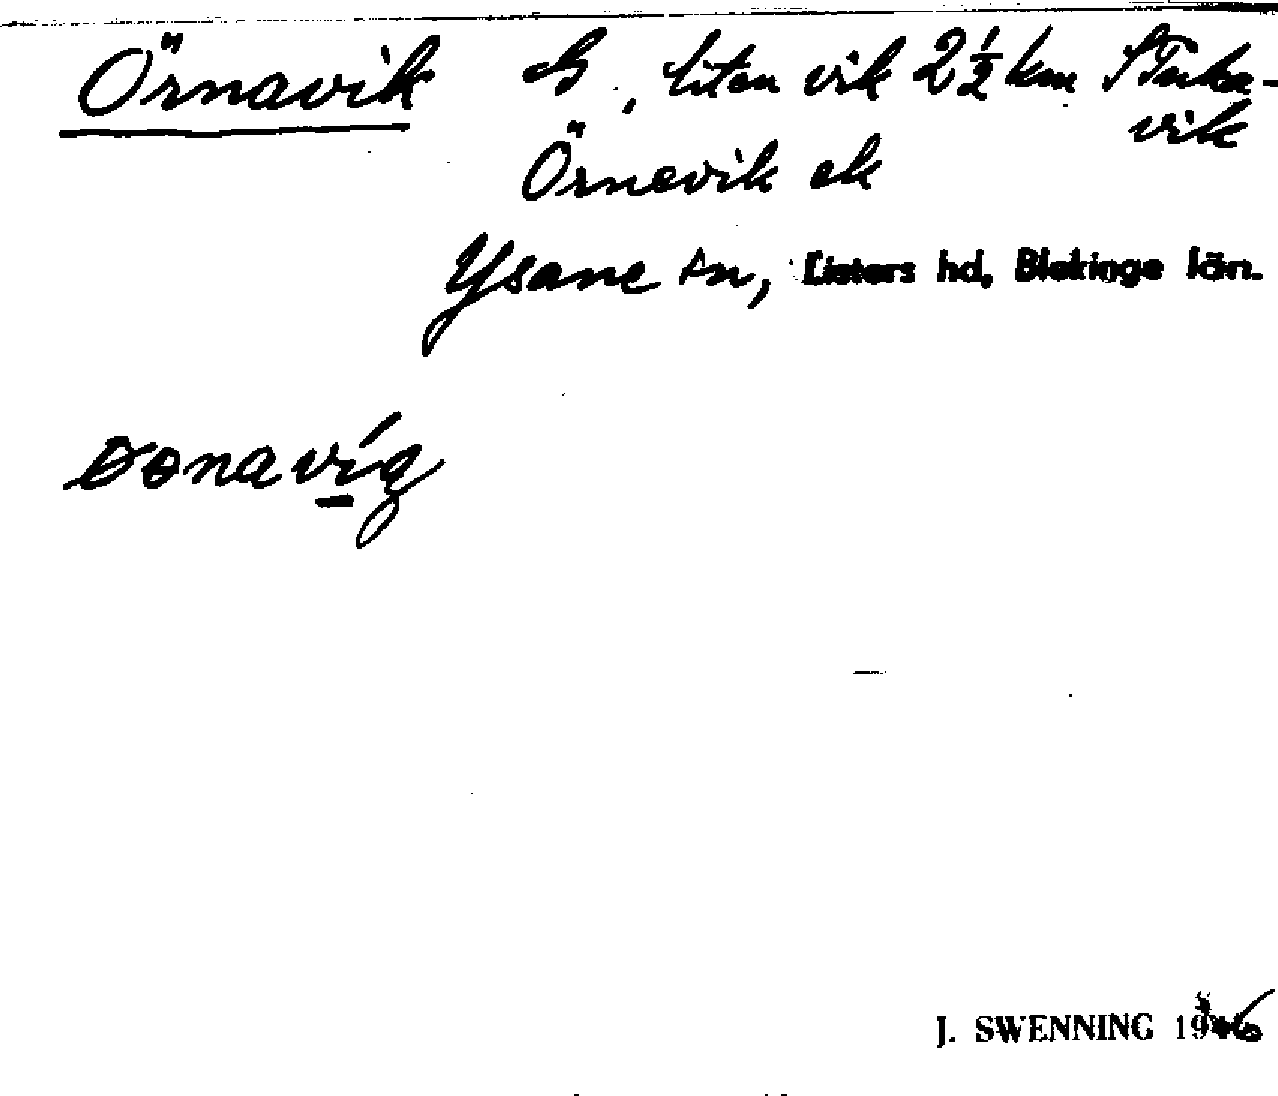 Örnavik G, liten vik 2½ km S Torka-
vik
Örnavik ek
Ysane sn, Listers hd, Blekinge län.
J. SWENNING 1946